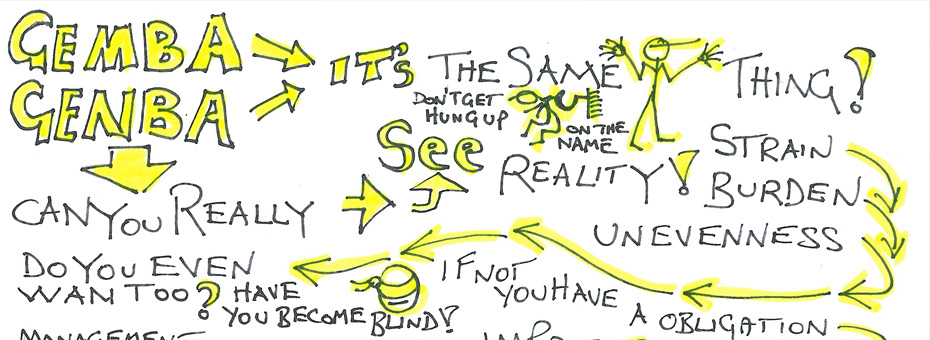 GEMBA
GENBA
IT'S THE SAME THING!
DON'T GET
HUNG UP
ON THE
NAME
CAN YOU REALLY
SEE
REALITY!
STRAIN
BURDEN
UNEVENNESS
DO YOU EVEN
WAN TOO?
HAVE
YOU BECOME BLIND?
IF NOT
YOU HAVE
A OBLIGATION
MANAGEMENT